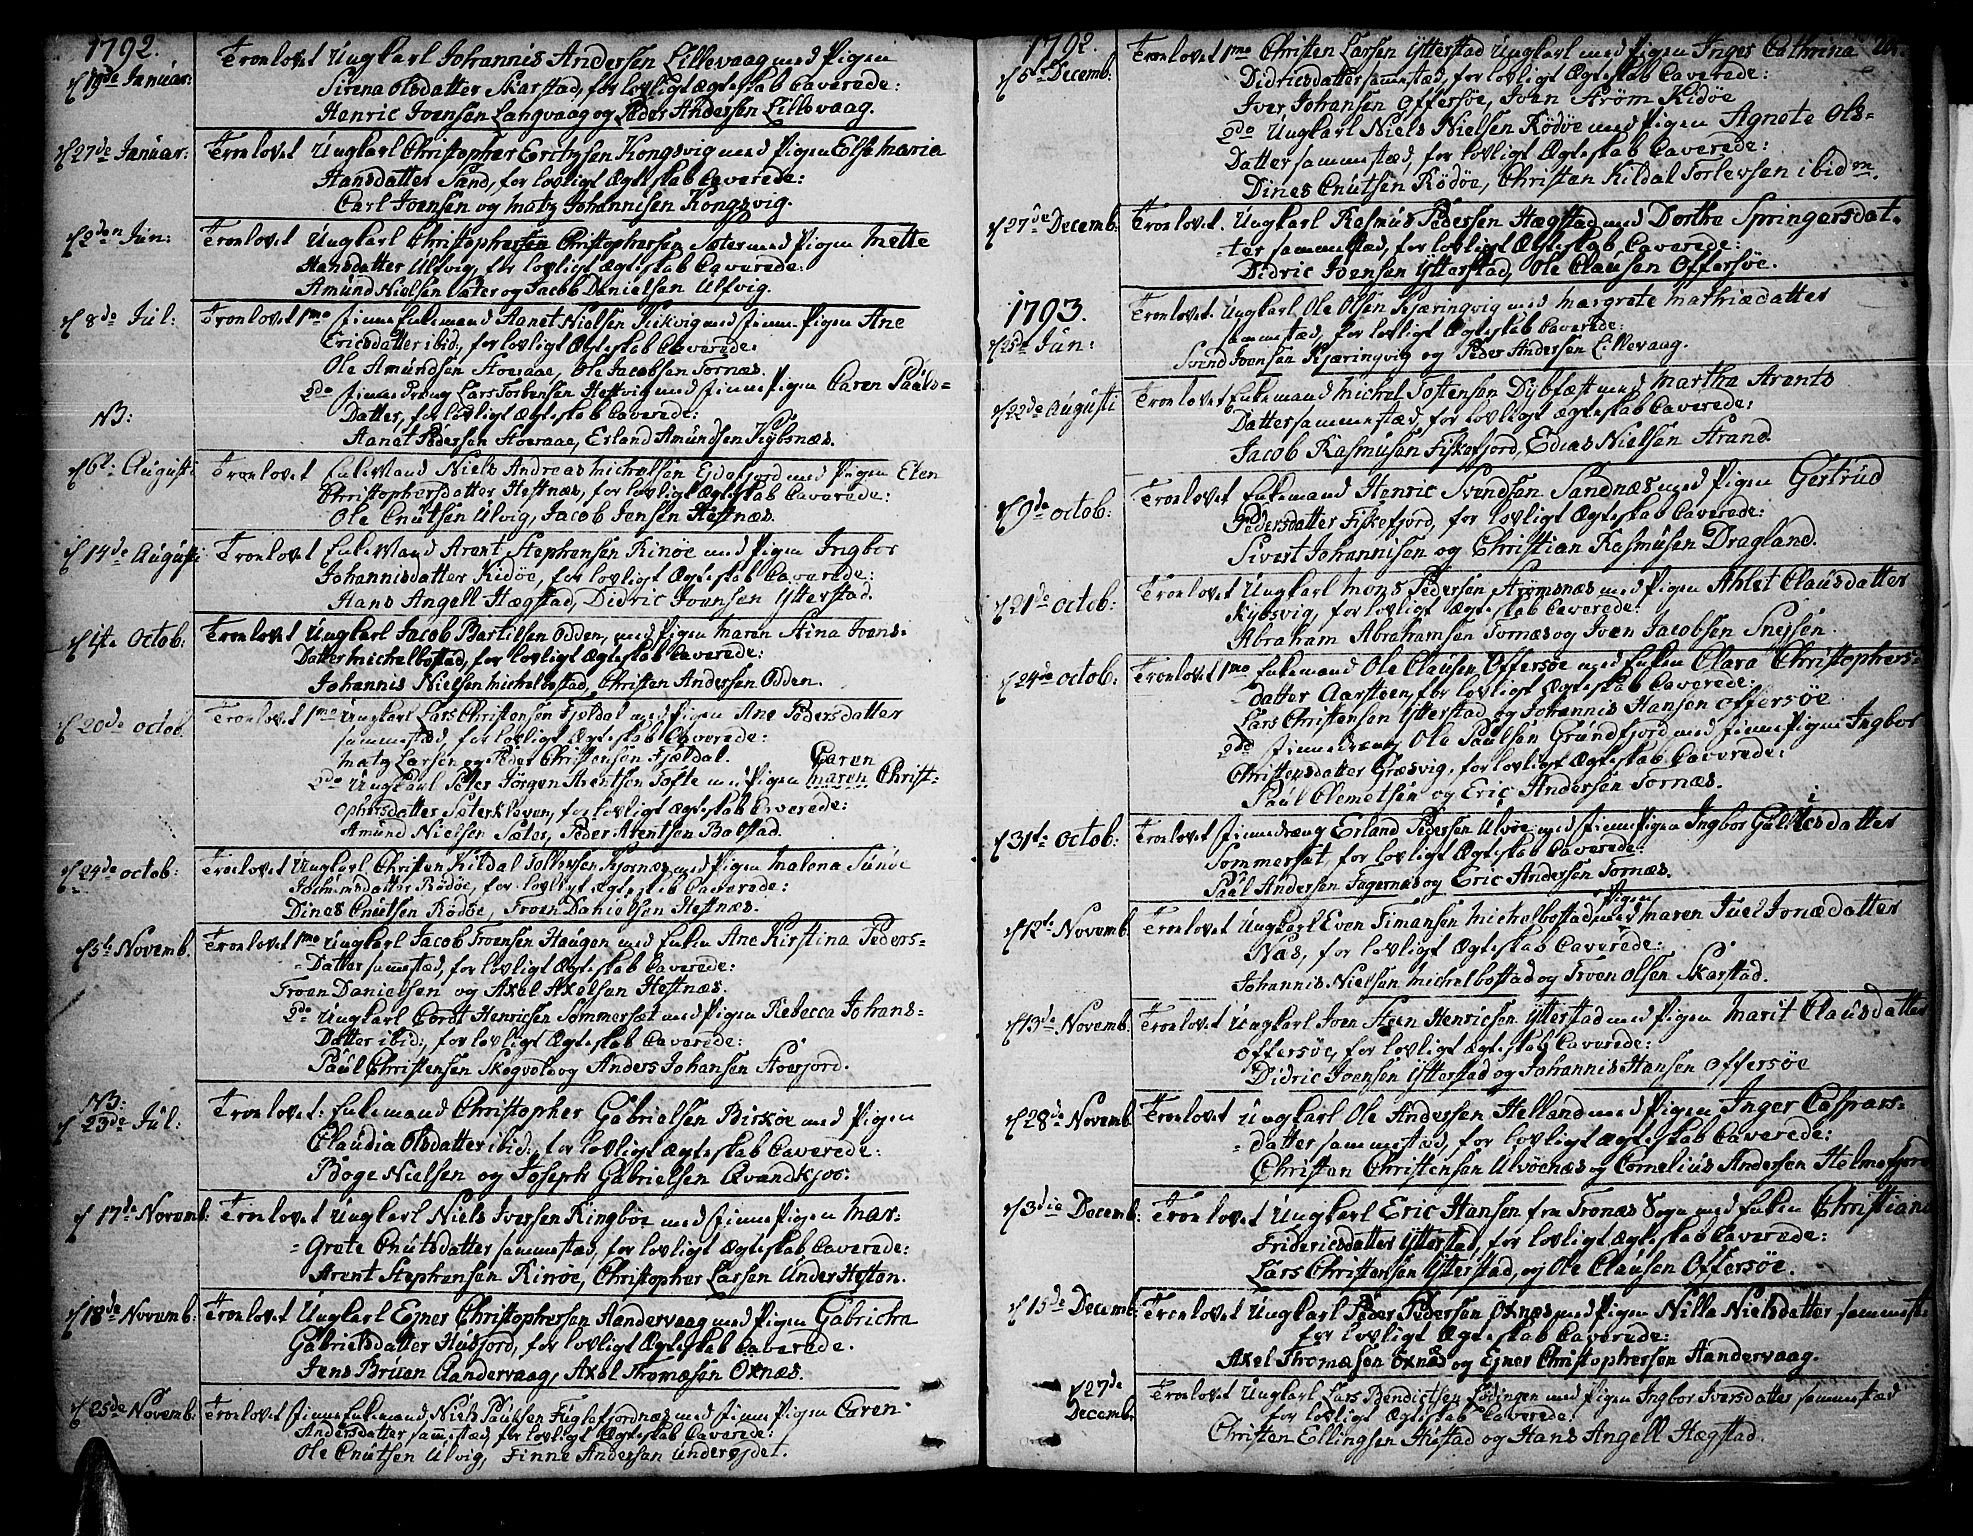 1792.
d 19de Januar: Tronlovet Ungkarl Johannis Andersen Lillevaag med Pigen
Sirena Olsdatter Skarstad, for lovligt Ægteskab Caverede:
Henric Ivensen Langvaag og Peder Andersen Lillevaag.
d 27de Januar: Tronlovet Ungkarl Christopher Erichsen Kongsvig med Pigen Else Maria
Hansdatter Sand, for lovligt Ægteskab Caverede:
Carl Ivensen og Matz Johannisen Kongsvig.
d 2den Jun: Tronlovet Ungkarl Christopher Christophersen Sæter med Pigen Mette
Hansdatter Ulfvig, for lovligt Ægteskab Caverede:
Amund Nielsen Sæter og Jacob Danielsen Ulfvig.
d 8de Jul: Tronlovet 1mo Finne Enkemand Aanet Nielsen Kikvig med Finne-Pigen Ane
Ericsdatter ibid, for lovligt Ægteskab Caverede:
Ole Amundsen Stoeraae, Ole Jacobsen Tornæs.
2do Finne Dreng Lars Torbensen Heftvig med Finne Pigen Caren Paals-
NB: Datter, for lovligt Ægteskab Caverede:
Aanet Pedersen Stoeraae, Erland Amundsen Kybsnæs.
d 6t: Augusti Tronlovet Enkemand Niels Andreas Michelsen Ejdefjord med Pigen Elen
Christophersdatter Heftnæs, for lovligt Ægteskab Caverede:
Ole Cnutsen Ulvig, Jacob Jensen Heftnæs.
d 14de Augusti Tronlovet Enkemand Arent Stephensen Rinøe med Pigen Ingbor
Johannisdatter Kidøe, for lovligt Ægteskab Caverede:
Hans Angell Hægstad, Didric Ivensen Ytterstad.
d 1ste Octob: Tronlovet Ungkarl Jacob Bartilsen Odden, med Pigen Maren Stina Ivens-
Datter Michelbostad, for lovligt Ægteskab Caverede:
Johannis Nielsen Michelbostad, Christen Andersen Odden.
d 20de Octob Tronlovet 1mo Ungkarl Lars Christensen Fjeldal med Pigen Ane Pedersdatter
sammestæd for lovligt Ægteskab Caverede:
Matz Larsen og Peder Christensen Fjeldal. Caren
2do Ungkarl Peter Jørgen Arentsen Tofte med Pigen Maren Christ-
ophersdatter Sæterkleven, for lovligt Ægteskab Caverede:
Amund Nielsen Sæter, Peder Arentsen Balstad.
d 24de Octob: Tronlovet Ungkarl Christen Kildal Tollevsen Kjornæs med Pigen Malena Sunde
Jochimsdatter Rødøe, for lovligt Ægteskab Caverede:
Dines Cnutsen Rødøe, Troen Danielsen Heftnæs.
d 5t Novemb. Tronlovet 1mo Ungkarl Jacob Troensen Haugen med Enken Ane Kirstina Peders-
-Datter sammestæd, for lovligt Ægteskab Caverede:
Troen Danielsen og Axel Axelsen Heftnæs.
2do Ungkarl Cordt Henricsen Sommersæt med Pigen Rebecca Johans-
Datter ibid:, for lovligt Ægteskab Caverede:
Paul Christensen Skogvold og Anders Johansen Stoerfjord.
NB:
d 23de Jul: Tronlovet: Enkemand Christopher Gabrielsen Birkøe med Pigen
Claudia Olsdatter ibid:, for lovligt Ægteskab Caverede:
Boge Nielsen og Joseph Gabrielsen Qvandkjos:
d 17de Novemb: Tronlovet Ungkarl Niels Iversen Ringbøe med Finne Pigen Mar-
-Grete Cnutsdatter sammestæd, for lovligt Ægteskab Caverede:
Arent Stephensen Rinøe, Christopher Larsen Under Heften.
d 18de Novemb: Tronlovet Ungkarl Ejner Christophersen Aandervaag med Pigen Gabricha
Gabrielsdatter Husfjord, for lovligt Ægteskab Caverede.
Jens Bruun Aandervaag, Axel Thomæsen Öxnæs.
d 25de Novemb: Tronlovet Finne Enkemand Niels Paulsen Fuglefjordnæs med Finne Pigen Caren
Andersdatter sammestæd, for lovligt Ægteskab Caverede:
Ole Cnutsen Ulvig, Finne Andersen Underejdet.
1792.
d 6t Decemb: Tronlovet 1mo Christen Larsen Ytterstad Ungkarl med Pigen Inger Cathrina
Didricsdatter sammestæd, for lovligt Ægteskab Caverede:
Iver Johansen Offersøe, Iven Strøm Kidøe
2do Ungkarl Niels Nielsen Rødøe med Pigen Agnete Ols-
Datter sammestæd, for lovligt Ægteskab Caverede:
Dines Cnutsen Rödöe, Christen Kildal Torlevsen ibidem.
d 27de Decemb. Tronlovet. Ungkarl Rasmus Pedersen Hægstad med Dorthe Springersdat-
-ter sammestæd, for lovligt Ægteskab Caverede:
Didric Ivensen Ytterstad, Ole Clausen Offersøe.
1793.
d 25de Jun: Tronlovet. Ungkarl Ole Olsen Kjæringvig med Margrete Mathiædatter
sammestæd, for lovligt Ægteskab Caverede:
Svend Ivensen Kjæringvig og Peder Andersen Lillevaag.
d 22de Augusti Tronlovet Enkemand Michel Tostensen Dybfæst med Martha Arents
Datter sammestæd, for lovligt Ægteskab Caverede:
Jacob Rasmusen Fiskefjord, Edias Nielsen Strand.
d 9de Octob: Tronlovet Enkemand Henric Svendsen Sandnæs med Pigen Gertrud
Pedersdatter Fiskefjord, for lovligt Ægteskab Caverede:
Sivert Johannisen og Christian Rasmusen Dragland.
d 21de Octob: Tronlovet Ungkarl Mons Pedersen Strømsnæs med Pigen Ahlet Clausdatter
Kybsvig, for lovligt Ægteskab Caverede:
Abraham Abrahamsen Tornæs og Iven Jacobsen Snejsen.
d 24de Octob: Tronlovet 1mo Enkemand Ole Clausen Offersøe med Enken Clara Christophers-
datter Aarsteen, for lovligt Ægteskab Caverede:
Lars Christensen Ytterstad og Johannis Hansen Offersøe
2do Finnedreng Ole Paulsen Grundfjord med Finne Pigen Ingbor
Christensdatter Græsvig, for lovligt Ægteskab Caverede:
Paul Clemetsen og Eric Andersen Tornæs.
d 31te Octob: Tronlovet Finnedreng Erland Pedersen Ulvøe med Finne Pigen Ingbor
Sommersæt, for lovligt Ægteskab Caverede:
Paul Andersen Fagernæs og Eric Andersen Tornæs.
Pigen
d 12t Novemb. Tronlovet Ungkarl Even Timansen Michelbostad med Maren Juel Jonædatter
Næs, for lovligt Ægteskab Caverede:
Johannis Nielsen Michelbostad og Troen Olsen Skarstad.
d 13de Novemb. Tronlovet Ungkarl Iven Steen Henricsen Ytterstad med Pigen Marit Clausdatter
Offersøe, for lovligt Ægteskab Caverede:
Didric Ivensen Ytterstad og Johannis Hansen Offersøe
d 28de Novemb Tronlovet Ungkarl Ole Andersen Helland med Pigen Inger Caspars-
-datter sammestæd, for lovligt Ægteskab Caverede:
Christen Christensen Ulvöenæs og Cornelius Andersen
d 3die Decemb: Tronlovet Ungkarl Eric Hansen fra Tronæs Sogn med Enken Christiana
Fridericsdatter Ytterstad, for lovligt Ægteskab Caverede:
Lars Christensen Ytterstad, og Ole Clausen Offersøe.
d 15de Decemb: Tronlovet Ungkarl Peder Pedersen Öxnæs med Pigen Nilla Nielsdatter sammestæ
for lovligt Ægteskab Caverede:
Axel Thomæsen Öxnæs og Ejner Christophersen Aandervaag.
d 27de
Decemb. Tronlovet Ungkarl Lars Bendictsen Lödingen med Pigen Ingbor Iversdatter sammestæd
for lovligt Ægteskab Caverede:
Christen Ellingsen Hustad og Hans Angell Hægstad.